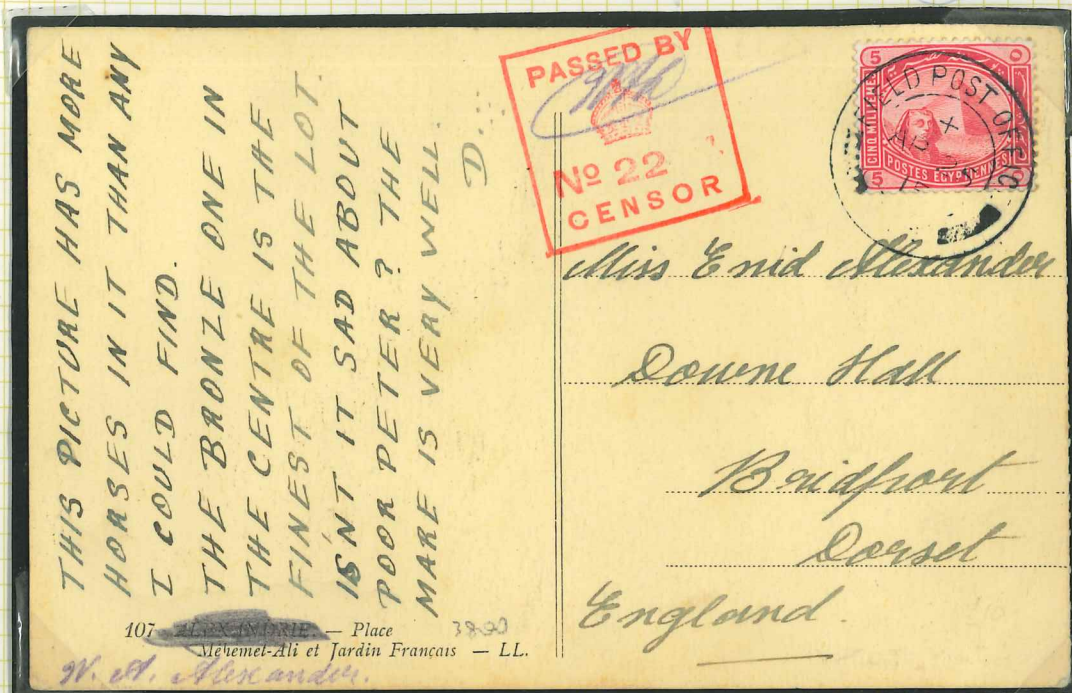 THIS PICTURE HAS MORE
HORSES IN IT THAN ANY
I COULD FIND.
THE BRONZE ONE IN
THE CENTRE IS THE
FINEST OF THE LOT
ISNT IT SAD ABOUT
POOR PETER? THE
MARE IS VERY WELL
D.
PASSED BY
No 22
CENSOR
FIELD POST OFFICE
X
AP 25
15
5
CINQ MILLIEMES
POSTES EGYPTIENNES
5
Miss Enid Alexander
Downe Hall
Bridport
Dorset
England.
107 ALEXANDRIE. — Place
Méhemet-Ali et Jardin Français — LL.
3800
W. A. Alexander.